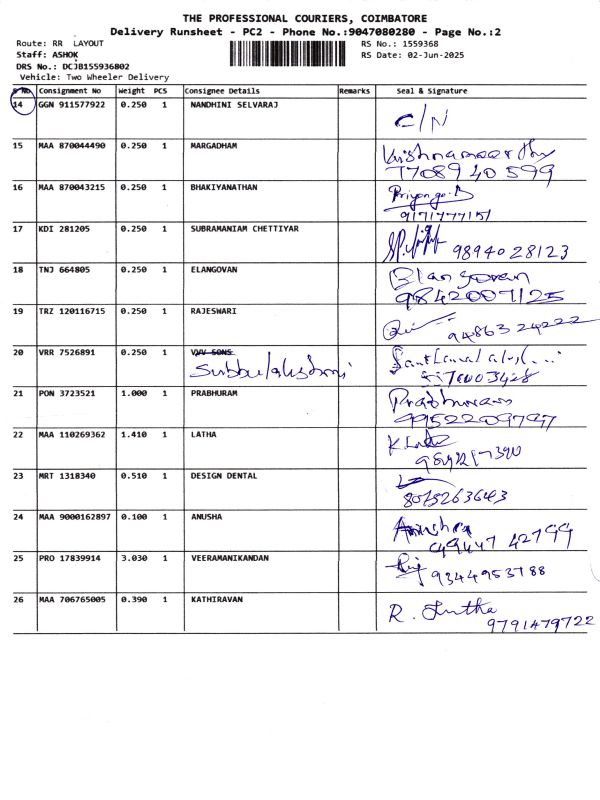 THE PROFESSIONAL COURIERS, COIMBATORE
Delivery Runsheet - PC2 - Phone No.:9047080280 - Page No.:2
Route: RR LAYOUT RS No.: 1559368
Staff: ASHOK RS Date: 02-Jun-2025
DRS No.: DCJB155936802
Vehicle: Two Wheeler Delivery
# No. Consignment No Weight PCS Consignee Details Remarks Seal & Signature
14 GGN 911577922 0.250 1 NANDHINI SELVARAJ C/N
15 MAA 870044490 0.250 1 MARGADHAM
77089 40 599
16 MAA 870043215 0.250 1 BHAKIYANATHAN Priyanga.B
9171777151
17 KDI 281205 0.250 1 SUBRAMANIAM CHETTIYAR 9894028123
18 TNJ 664805 0.250 1 ELANGOVAN Elangovan
9842007125
19 TRZ 120116715 0.250 1 RAJESWARI 94863 24222
20 VRR 7526891 0.250 1 VJV SONS
Subbulakshmi
21 PON 3723521 1.000 1 PRABHURAM Prabhuram
9952209797
22 MAA 110269362 1.410 1 LATHA K.Latha
23 MRT 1318340 0.510 1 DESIGN DENTAL
24 MAA 9000162897 0.100 1 ANUSHA Anusha
42799
25 PRO 17839914 3.030 1 VEERAMANIKANDAN 9344953788
26 MAA 706765005 0.390 1 KATHIRAVAN R.
9791479722